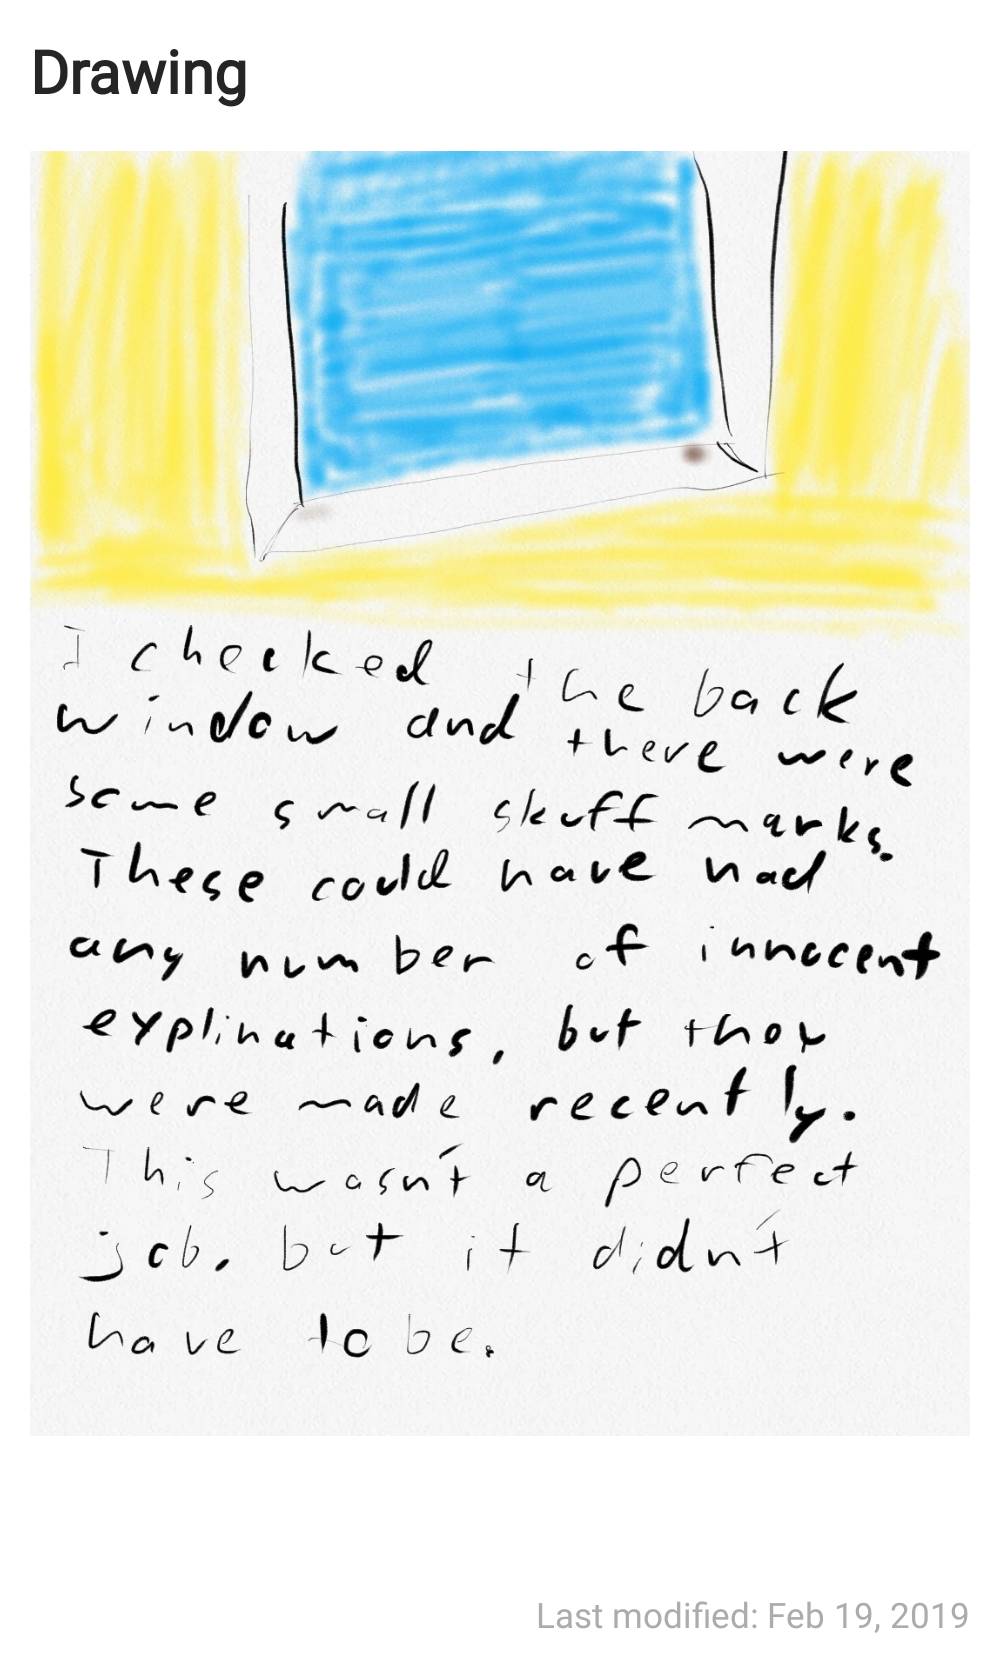 Drawing
I checked the back
window and there were
some small skuff marks.
These could have had
any number of innocent
explinations, but they
were made recently.
This wasn't a perfect
job, but it didn't
have to be.
Last modified: Feb 19, 2019